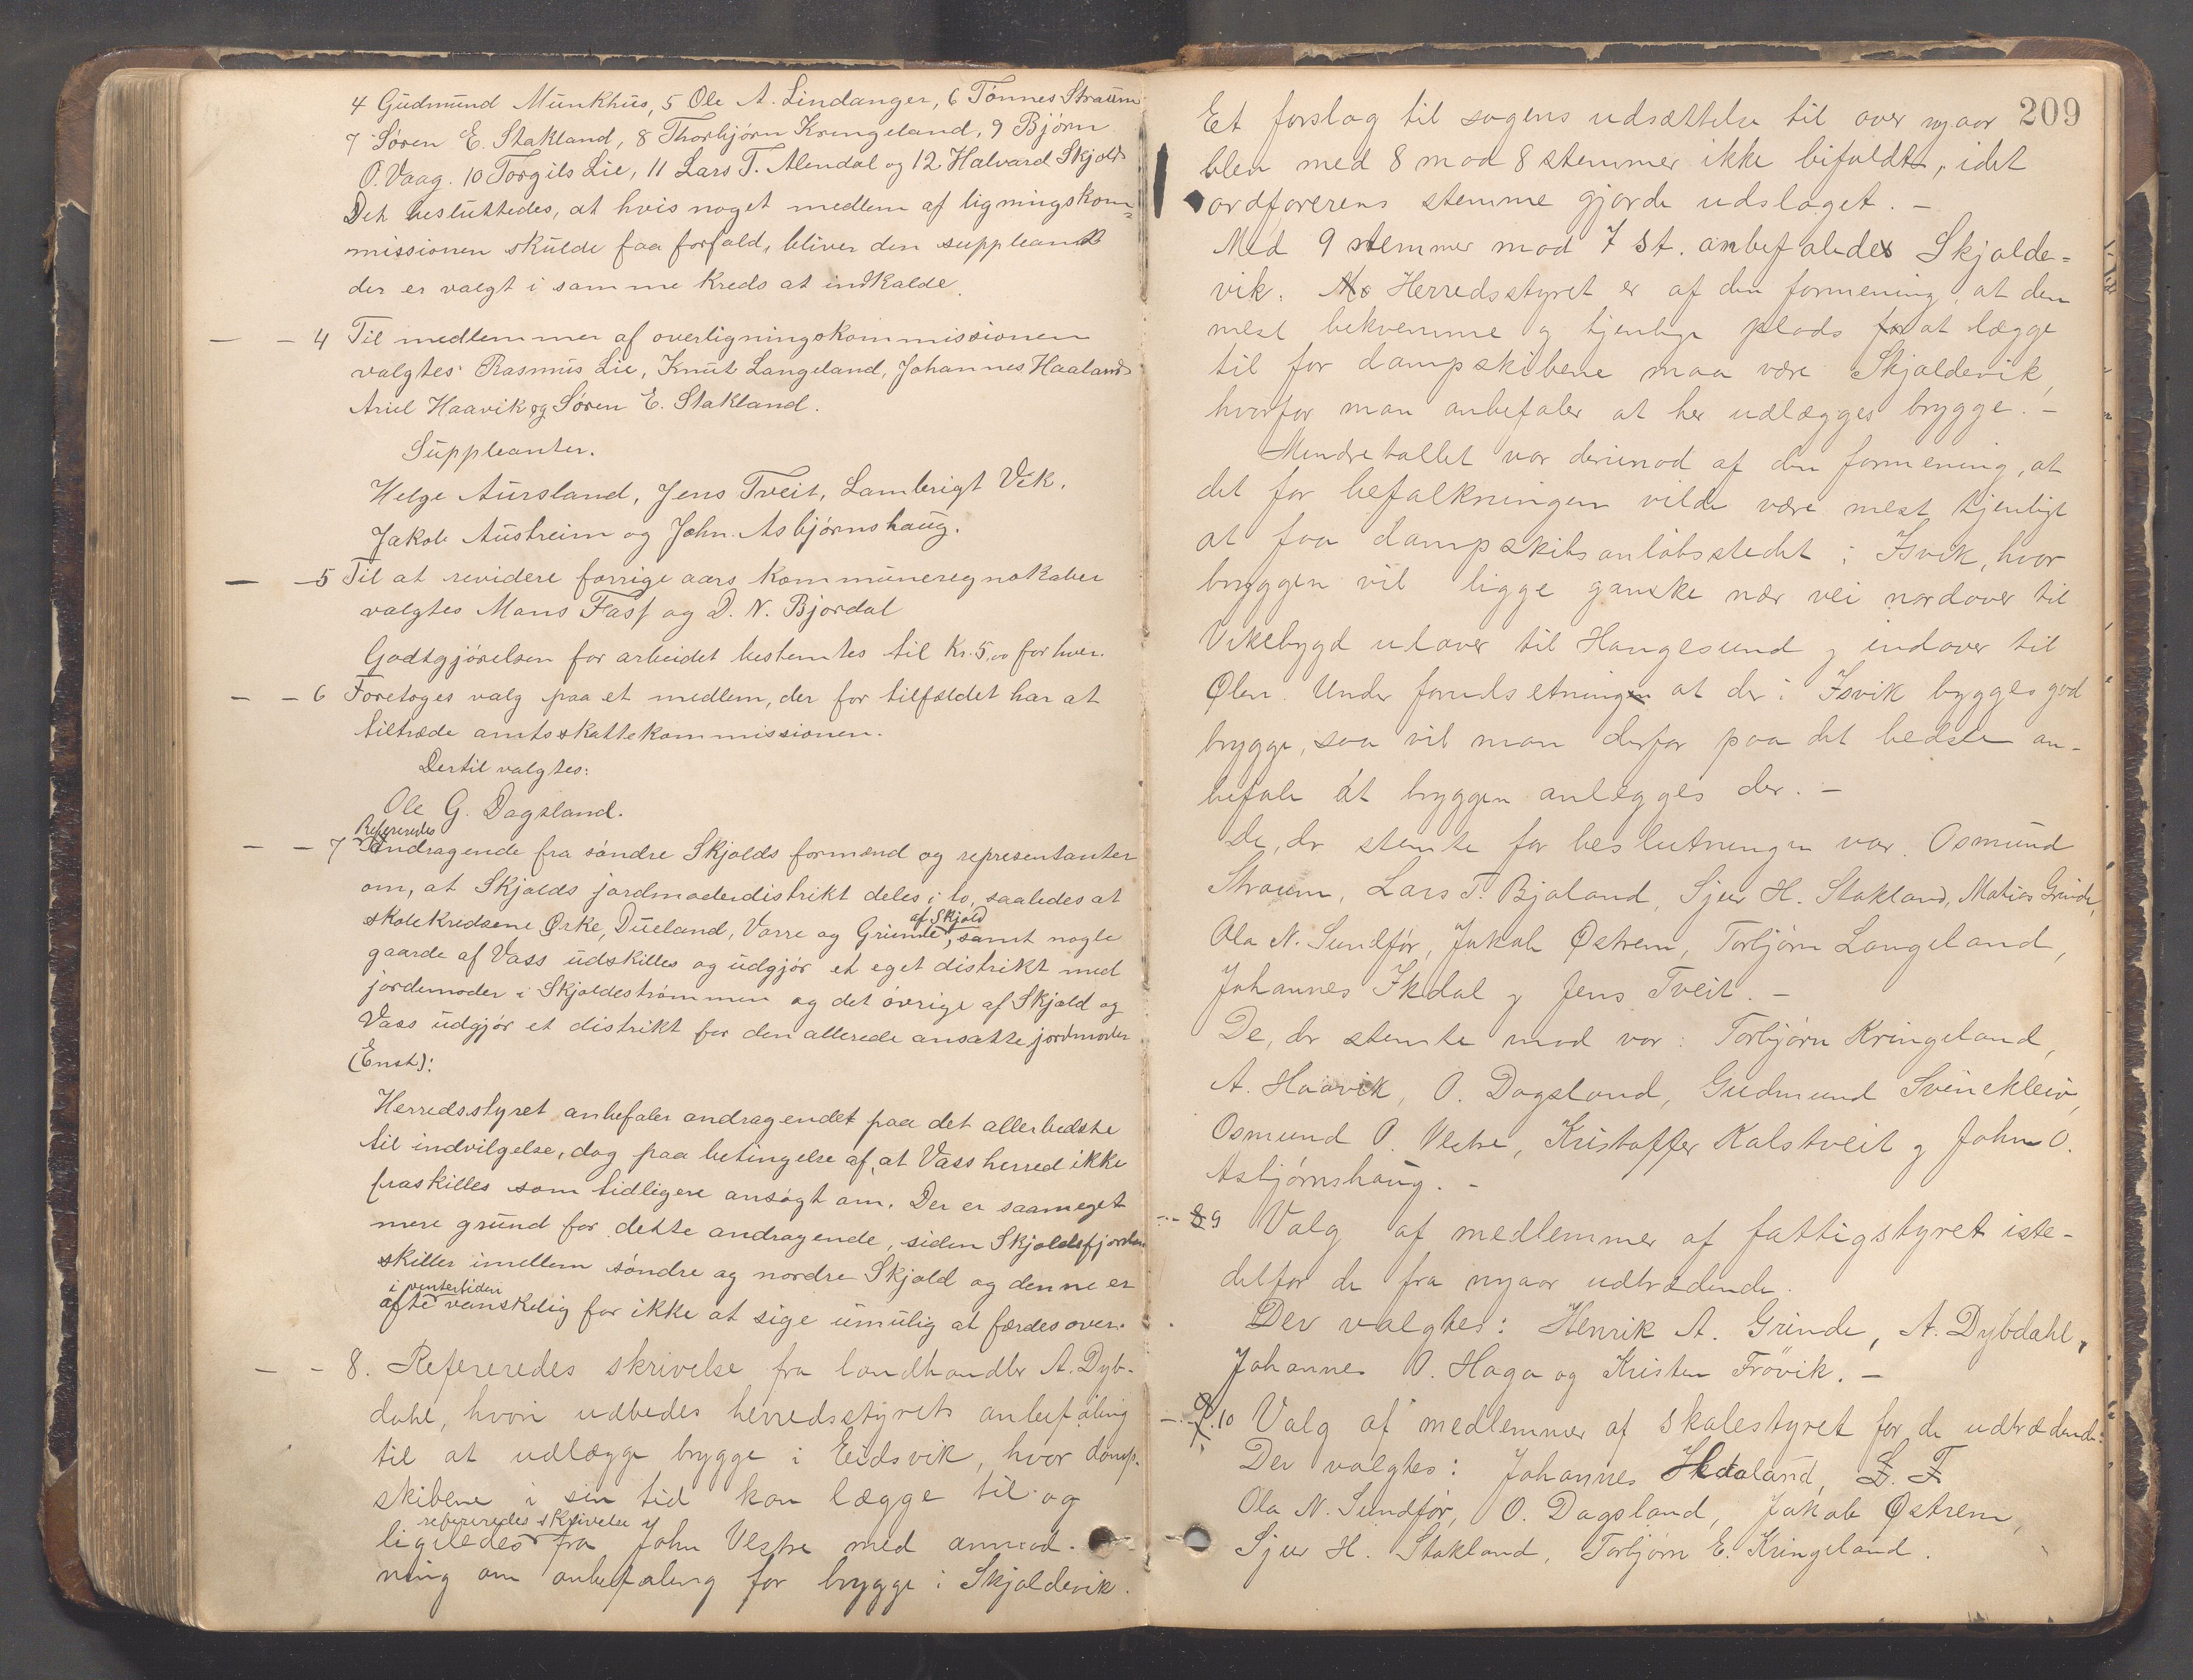 4 Gudmund Munkhus, 5 Ole A. Lindanger, 6 Tönnes Straum
7 Sören E. Stakland, 8 Thorbjörn Kringeland, 9 Björn
O. Vaag. 10 Torgils Lie, 11 Lars T. Alendal og 12 Halvard Skjold.
Det besluttedes, at hvis noget medlem af ligningskom=
missionen skulde faa forfald, bliver den suppleant
der er valgt i samme kreds at indkalde.
— – 4 Til medlemmer af overligningskommissionen
valgtes: Rasmus Lie, Knut Langeland, Johannes Haaland
Ariel Haavik og Sören E. Stakland.
Suppleanter.
Helge Aursland, Jens Tveit, Lambrigt Vik.
Jakob Austreim og John Asbjörnshaug.
— – 5 Til at revidere forrige aars kommuneregnskaber
valgtes Mons Fasf og D. N. Bjordal
Godtgjörelsen for arbeidet bestemtes til Kr. 5,00 for hver.
– – 6 Foretoges valg paa et medlem, der for tilfældet har at
tiltræde amtsskattekommissionen.
Dertil valgtes:
Ole G. Dagsland.
Refereredes
– – 7 Andragende fra söndre Skjolds formænd og representanter
om, at Skjolds jordmoderdistrikt deles i to, saaledes at
af Skjold
skolekredsene Ørke, Dueland, Vorre og Grinde, samt nogle
gaarde af Vass udskilles og udgjör et eget distrikt med
jordemoder i Skjoldeströmmen og det övrige af Skjold og
Vass udgjör et distrikt for den allerede ansatte jordmoder
(Enst):
Herredsstyret anbefaler andragendet paa det allerbedste
til indvilgelse, dog paa betingelse af, at Vass herred ikke
fraskilles som tidligere ansögt om. Der er saameget
mere grund for dette andragende, siden Skjoldsfjorden
skiller imellem söndre og nordre Skjold og denne er
i ventertiden
ofte vanskelig for ikke at sige umulig at færdes over.
– – 8. Refereredes skrivelse fra landhandler A. Dyb-
dahl, hvori udbedes herredsstyrets anbefaling
til at udlægge brygge i Eidsvik, hvor damp-
skibene i sin tid kan lægge til og
refereredes skrivelse
ligeledes fra John Vestre med anmod-
ning om anbefaling for brygge i Skjoldevik.
209
Et forslag til sagens udsættelse til over nyaar
blev med 8 mod 8 stemmer ikke bifaldt, idet
ordførerens stemme gjorde udslaget. –
Med 9 stemmer mod 7 st. anbefaledes Skjolde=
vik. Herredsstyret er af den formening, at den
mest bekvemme og tjenlige plads for at lægge
til for dampskibene maa være Skjoldevik,
hvorfor man anbefaler at her udlægges brygge. –
Mindretallet var derimod af den formening, at
det for befalkningen vilde være mest tjenligt
at faa dampskibsanløbsstedet i Isvik, hvor
bryggen vil ligge ganske nær vei nordover til
Vikebygd utover til Haugesund og indover til
Ølen. Under forudsetning at der i Isvik bygges god
brygge, saa vil man derfor paa det bedste an-
befale at bryggen anlægges der. –
De, der stemte for beslutningen var. Osmund
Straum, Lars T. Bjoland, Sjur H. Stakland, Matias Grinde,
Ola N. Sundför, Jakob Østrem, Torbjörn Langeland,
Johannes Ikdal og Jens Tveit. –
De, der stemte mod var: Torbjörn Kringeland,
A. Haavik, O. Dagsland, Gudmund Svinekleiv,
Osmund O. Vestre, Kristoffer Kalstveit og John O.
Asbjørnshaug. –
– – 9 Valg af medlemmer af fattigstyret iste-
detfor de fra nyaar udtrædende.
Der valgtes: Henrik A. Grinde, A. Dybdahl,
Johannes O. Haga og Kristen Frövik. –
– – 10 Valg af medlemmer af skolestyret for de udtrædende:
Der valgtes: Johannes Haaland, L. T
Ola N. Sundför, O. Dagsland, Jakob Østrem,
Sjur H. Stakland, Torbjörn E. Kringeland.